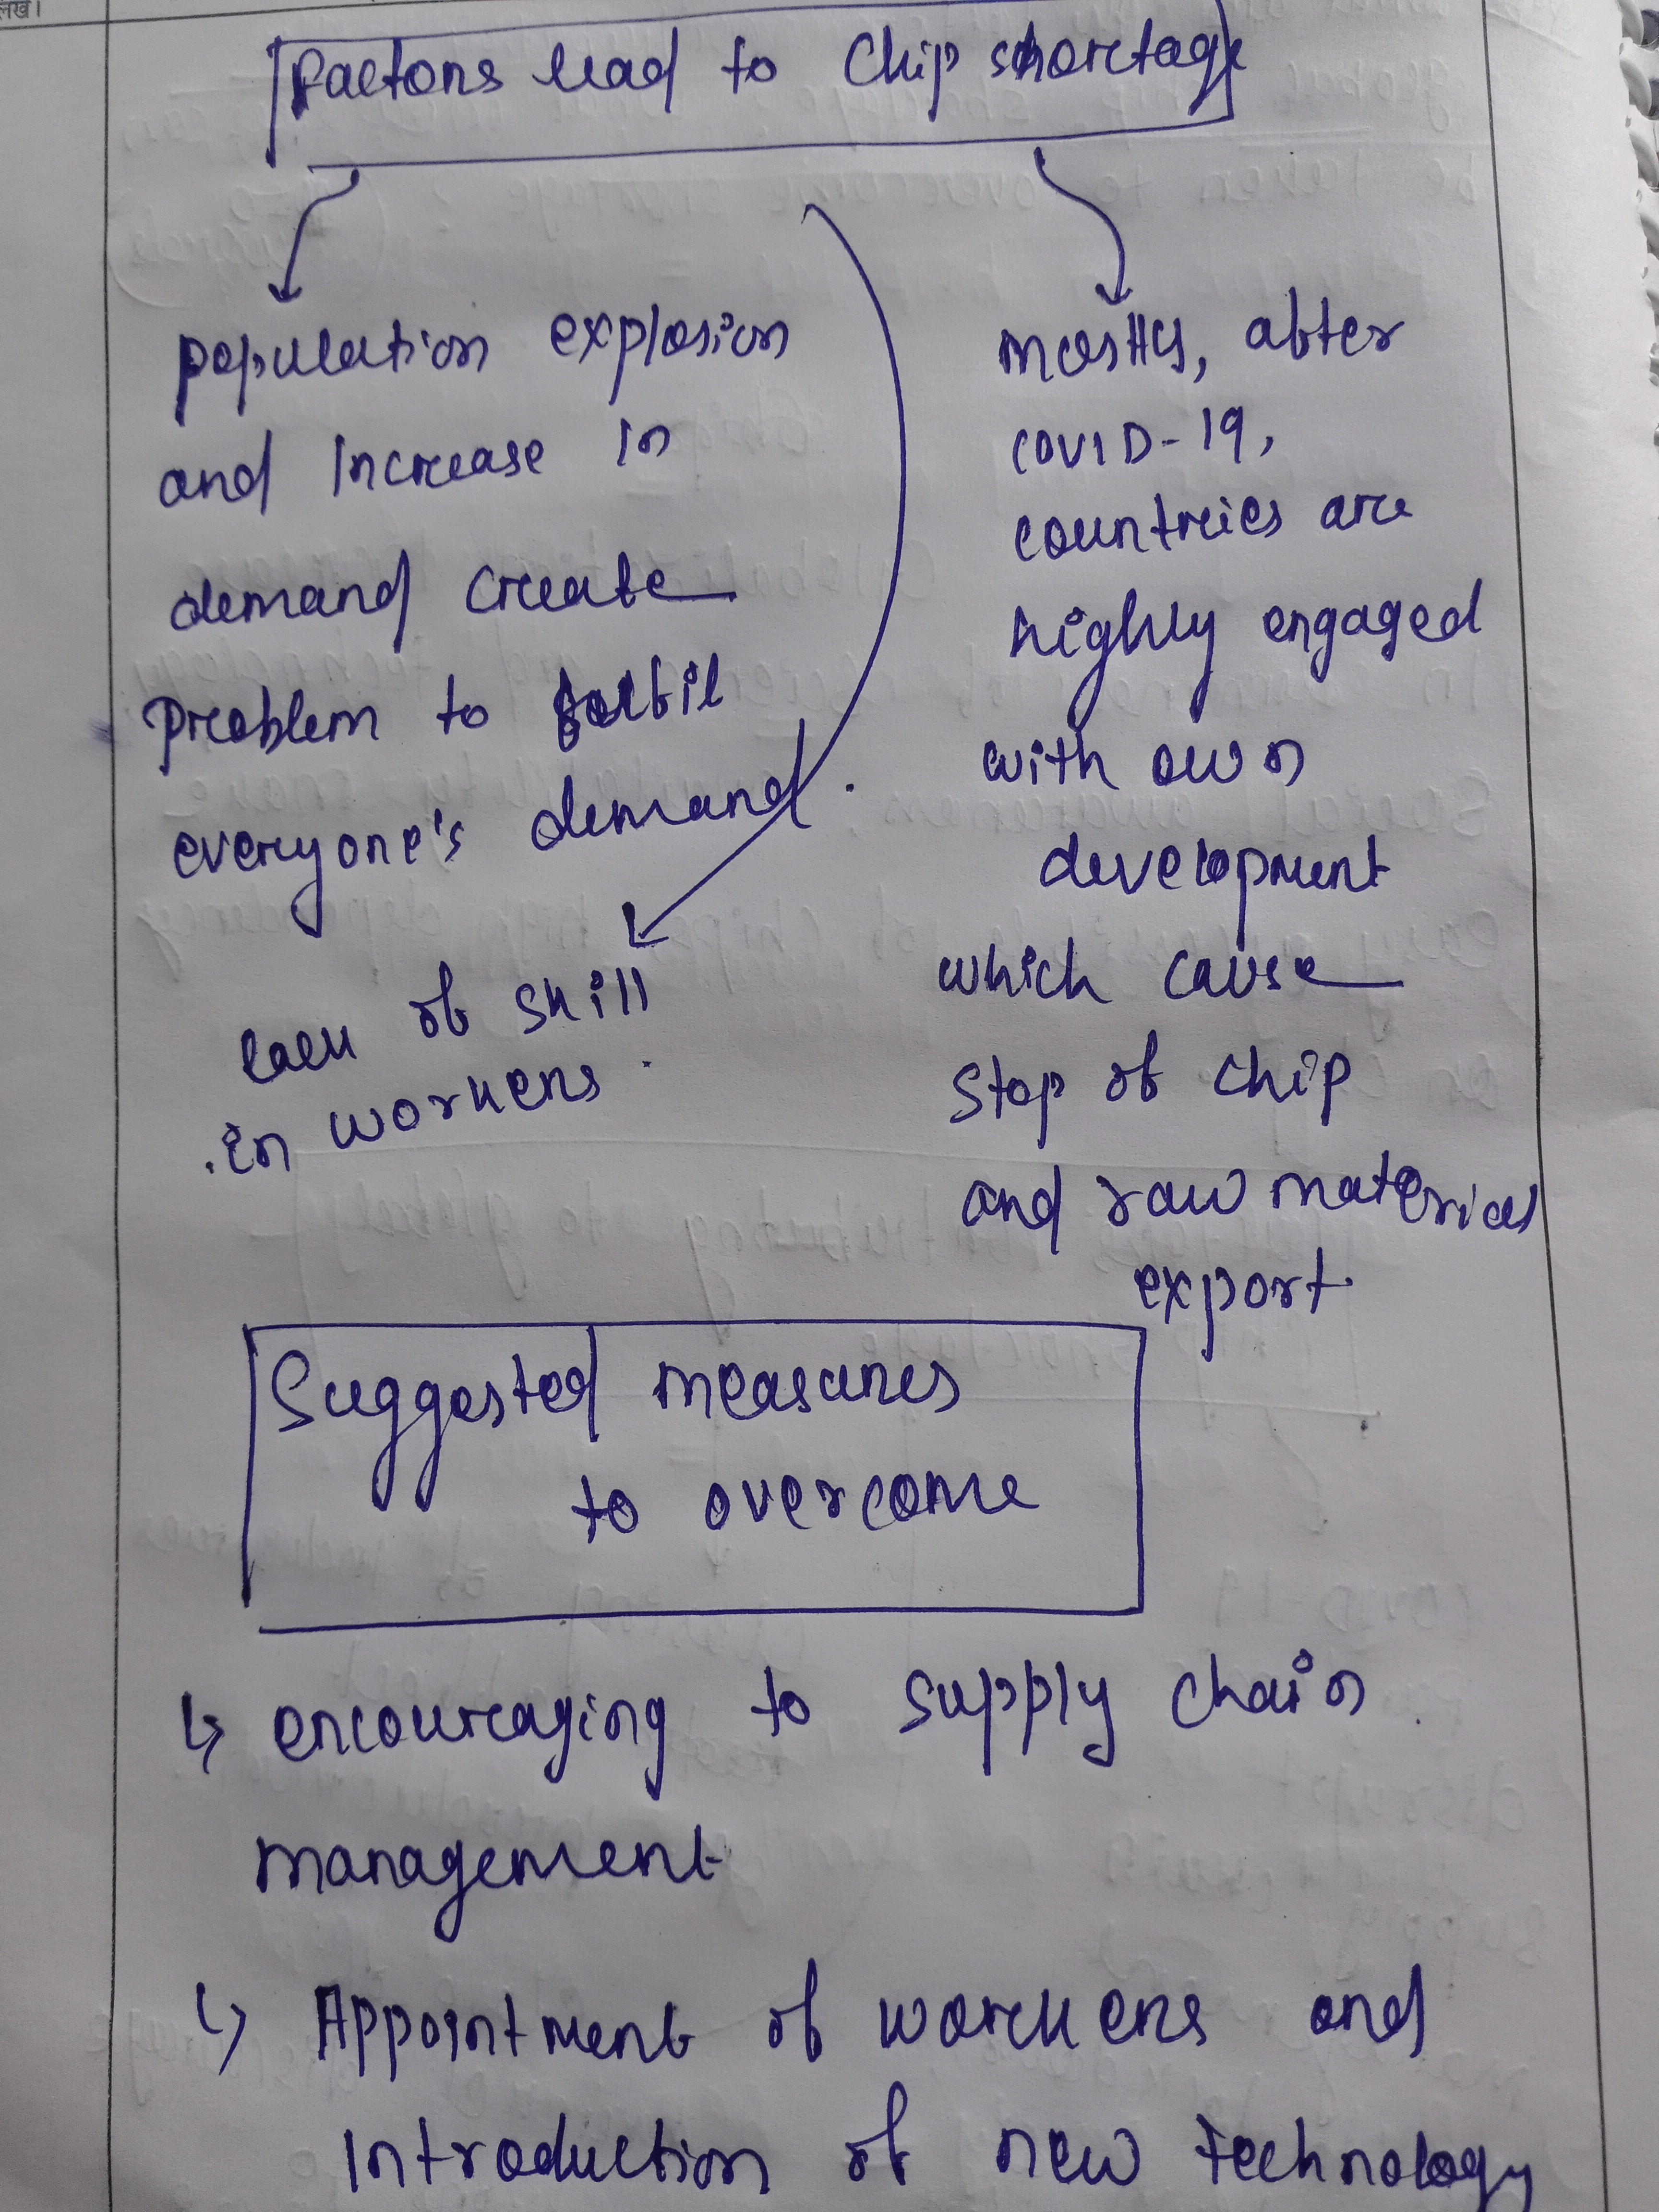 लिखें।
Factors lead to Chip shortage
population explosion
and increase in
demand create
problem to fulfil
everyone's demand.
lack of skill
in workers.
mostly, after
COVID-19,
countries are
highly engaged
with own
development
which cause
stop of chip
and raw material
export.
Suggested measures
to overcome
↳ encouraging to supply chain
management
↳ Appointment of workers and
introduction of new technology